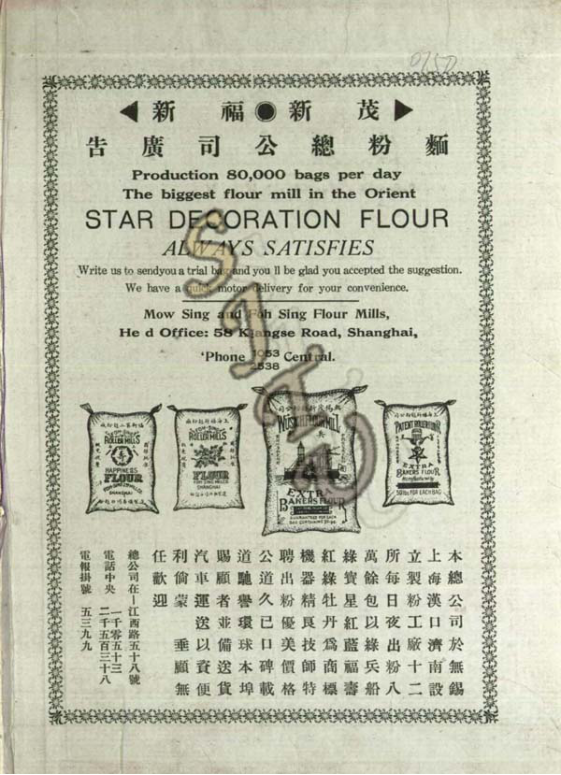 0150
新福●新茂
告廣司公總粉麵
Production 80,000 bags per day
The biggest flour mill in the Orient
STAR DECORATION FLOUR
ALWAYS SATISFIES
Write us to sendyou a trial bag and you ll be glad you accepted the suggestion.
We have a quick motor delivery for your convenience.
Mow Sing and Foh Sing Flour Mills,
He d Office: 58 Kiangse Road, Shanghai,
'Phone 1053 2538 Central.
ROLLER MILLS
HAPPINESS
FLOUR
SHANGHAI
ROLLER MILLS
FLOUR
SHANGHAI
WUSIH ROLLER MILL
EXTRA
BAKERS FLOUR
PATENT ROLLER FLOUR
EXTRA
BAKERS FLOUR
50 lbs. FOR EACH BAG
本總公司於無錫
上海漢口濟南設
立製粉工廠十二
所每日夜出粉八
萬餘包以綠兵船
綠寶星紅藍福壽
紅綠牡丹爲商標
機器精良技師特
聘出粉優美價格
公道久已口碑載
道馳譽環球本埠
賜顧者並備送貨
汽車運送以資便
利倘蒙 垂顧無
任歡迎
總公司在江西路五十八號
電話中央 一千零五十三 二千五百三十八
電報掛號 五三九九
SJTU